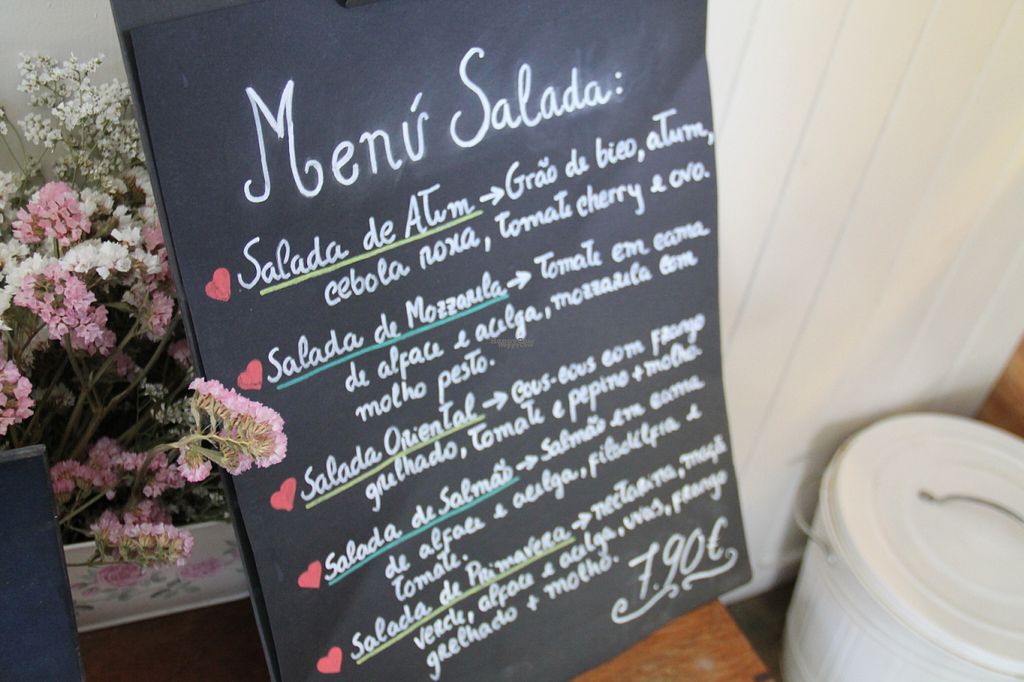 Menú Salada:
Salada de Atum → Grão de bico, atum,
cebola roxa, tomate cherry e ovo.
Salada de Mozzarela → Tomate em cama
de alface e acelga, mozzarela com
molho pesto.
Salada Oriental → Cous-cous com frango
grelhado, tomate e pepino + molho.
Salada de Salmão → Salmão em cama
de alface e acelga, filadélfia e
tomate.
Salada de Primavera → nectarina, maçã
verde, alface e acelga, uvas, frango
grelhado + molho.
7.90€